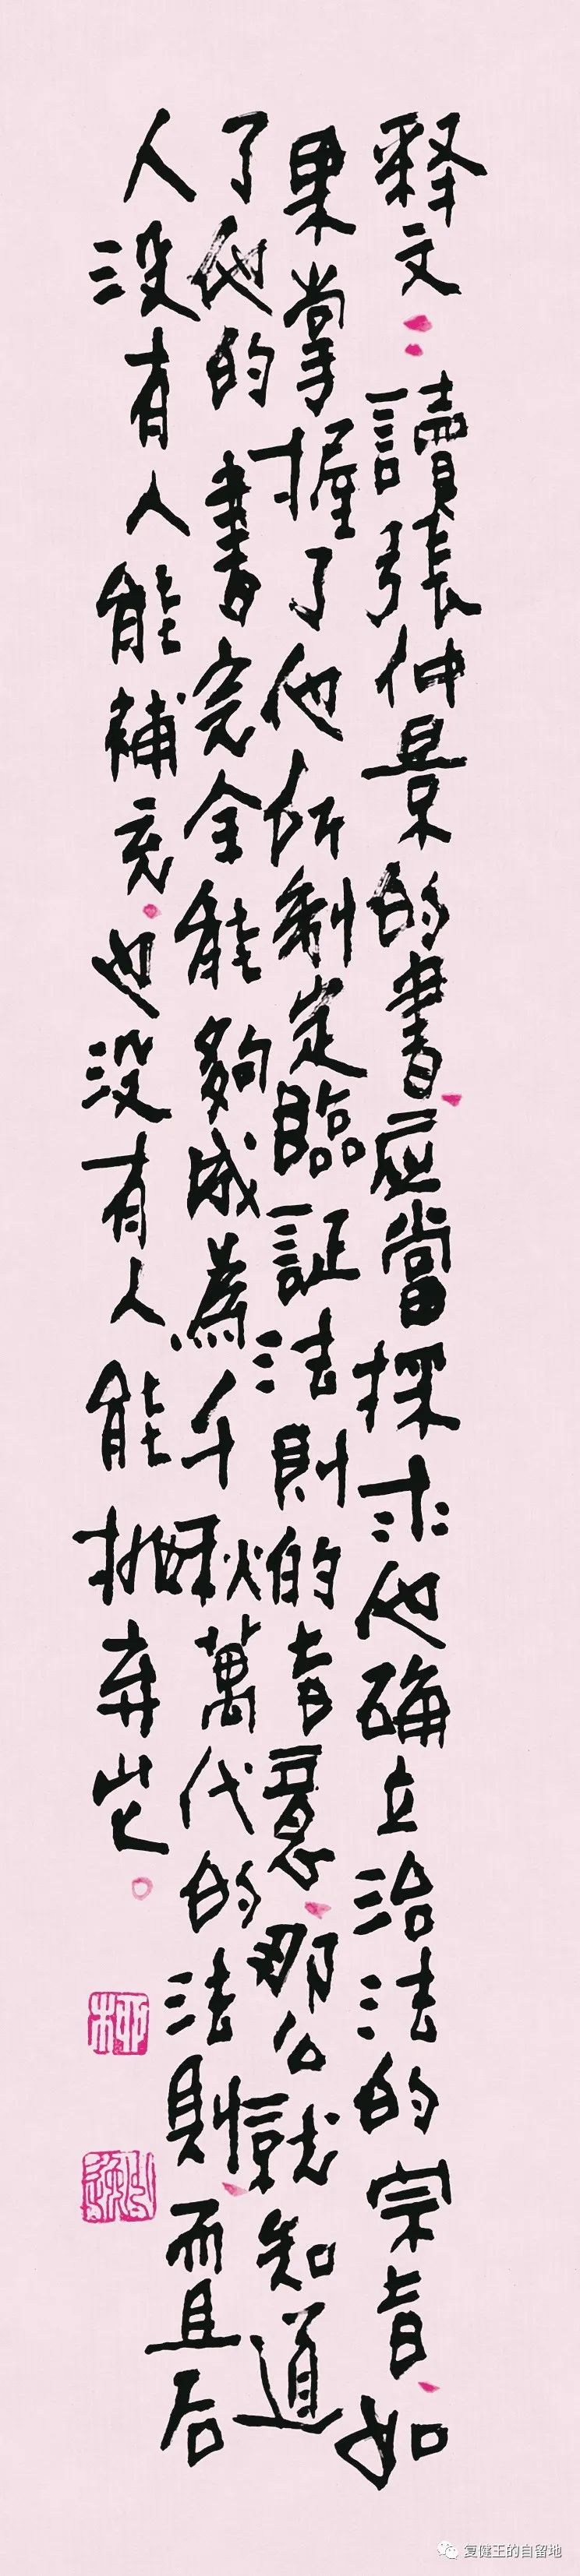 释文：讀張仲景的書，应當探求他确立治法的宗旨，如
果掌握了他所制定臨証法則的旨意，那么就知道
了他的書完全能夠成為千秋萬代的法則，而且后
人没有人能補充，也没有人能抛弃它。
复健王的自留地